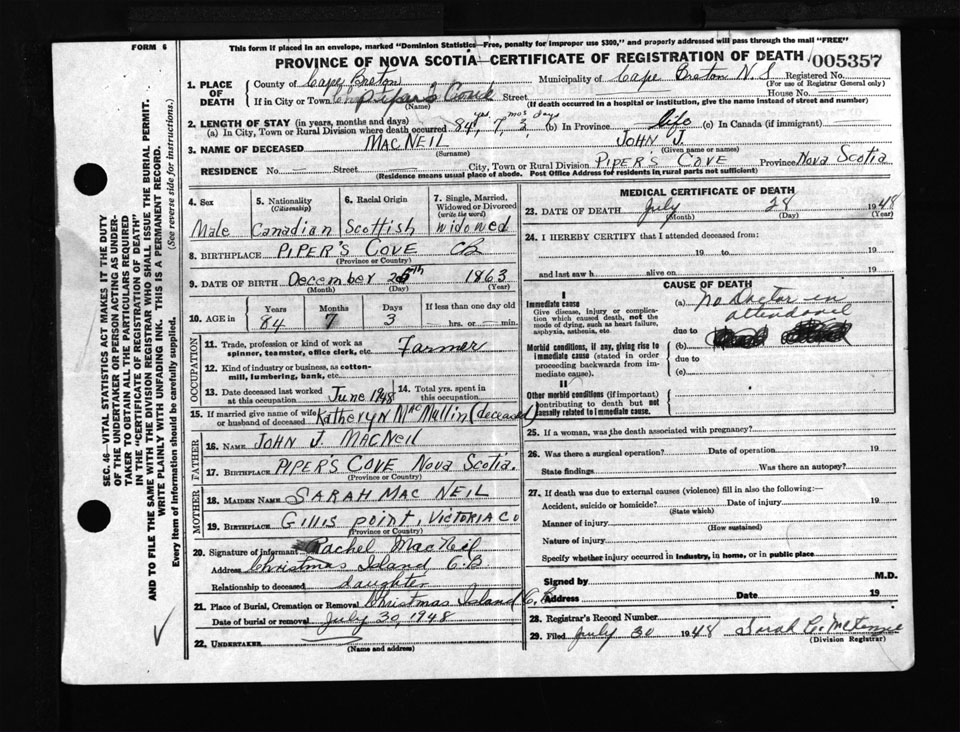 FORM 6
This form if placed in an envelope, marked "Dominion Statistics—Free, penalty for improper use $300," and properly addressed will pass through the mail "FREE"
PROVINCE OF NOVA SCOTIA—CERTIFICATE OF REGISTRATION OF DEATH 005357
SEC. 46—VITAL STATISTICS ACT MAKES IT THE DUTY
OF THE UNDERTAKER OR PERSON ACTING AS UNDER-
TAKER TO OBTAIN ALL THE PARTICULARS REQUIRED
IN THE "CERTIFICATE OF REGISTRATION OF DEATH"
AND TO FILE THE SAME WITH THE DIVISION REGISTRAR WHO SHALL ISSUE THE BURIAL PERMIT.
WRITE PLAINLY WITH UNFADING INK. THIS IS A PERMANENT RECORD.
Every item of Information should be carefully supplied. (See reverse side for instructions.)
1. PLACE OF DEATH
County of Cape Breton Municipality of Cape Breton N.S Registered No.
(For use of Registrar General only)
If in City or Town Piper's Cove Street House No.
(Name) (If death occurred in a hospital or institution, give the name instead of street and number)
2. LENGTH OF STAY (in years, months and days)
(a) In City, Town or Rural Division where death occurred 84 yrs, 7 mos 3 days (b) In Province life (c) In Canada (if immigrant)
3. NAME OF DECEASED MACNEIL JOHN J.
(Surname) (Given name or names)
RESIDENCE No. — Street — City, Town or Rural Division PIPER'S COVE Province Nova Scotia
(Residence means usual place of abode. Post Office Address for residents in rural parts not sufficient)
4. Sex
Male
5. Nationality
(Citizenship)
Canadian
6. Racial Origin
Scottish
7. Single, Married, Widowed or Divorced
(write the word)
Widowed
8. BIRTHPLACE PIPER'S COVE CB
(Province or Country)
9. DATE OF BIRTH December 25th 1863
(Month) (Day) (Year)
10. AGE in
Years Months Days If less than one day old
84 7 3 hrs. or min.
OCCUPATION
11. Trade, profession or kind of work as
spinner, teamster, office clerk, etc. Farmer
12. Kind of industry or business, as cotton-
mill, lumbering, bank, etc.
13. Date deceased last worked
at this occupation June 1948
14. Total yrs. spent in
this occupation
15. If married give name of wife
or husband of deceased Katheryn MacMullin (deceased)
FATHER
16. NAME JOHN J. MACNEIL
17. BIRTHPLACE PIPER'S COVE NOVA SCOTIA.
(Province or Country)
MOTHER
18. MAIDEN NAME SARAH MAC NEIL
19. BIRTHPLACE GILLIS POINT, VICTORIA CO
(Province or Country)
20. Signature of informant Rachel MacNeil
Address Christmas Island C.B
Relationship to deceased daughter
21. Place of Burial, Cremation or Removal Christmas Island C.B.
Date of burial or removal July 30, 1948
22. UNDERTAKER
(Name and address)
MEDICAL CERTIFICATE OF DEATH
23. DATE OF DEATH July 28 1948
(Month) (Day) (Year)
24. I HEREBY CERTIFY that I attended deceased from:
19 to 19
and last saw h alive on 19
CAUSE OF DEATH
I
Immediate cause
Give disease, injury or complica-
tion which caused death, not the
mode of dying, such as heart failure,
asphyxia, asthenia, etc.
(a) No Doctor in
attendance
due to
Morbid conditions, if any, giving rise to
immediate cause (stated in order
proceeding backwards from im-
mediate cause).
(b)
due to
(c)
II
Other morbid conditions (if important)
contributing to death but not
causally related to immediate cause.
25. If a woman, was the death associated with pregnancy?
26. Was there a surgical operation? Date of operation 19
State findings Was there an autopsy?
27. If death was due to external causes (violence) fill in also the following:—
Accident, suicide or homicide? Date of injury 19
(State which)
Manner of injury
(How sustained)
Nature of injury
Specify whether injury occurred in industry, in home, or in public place
Signed by M.D.
Address Date 19
28. Registrar's Record Number
29. Filed July 30 1948 Sarah McKenzie
(Division Registrar)